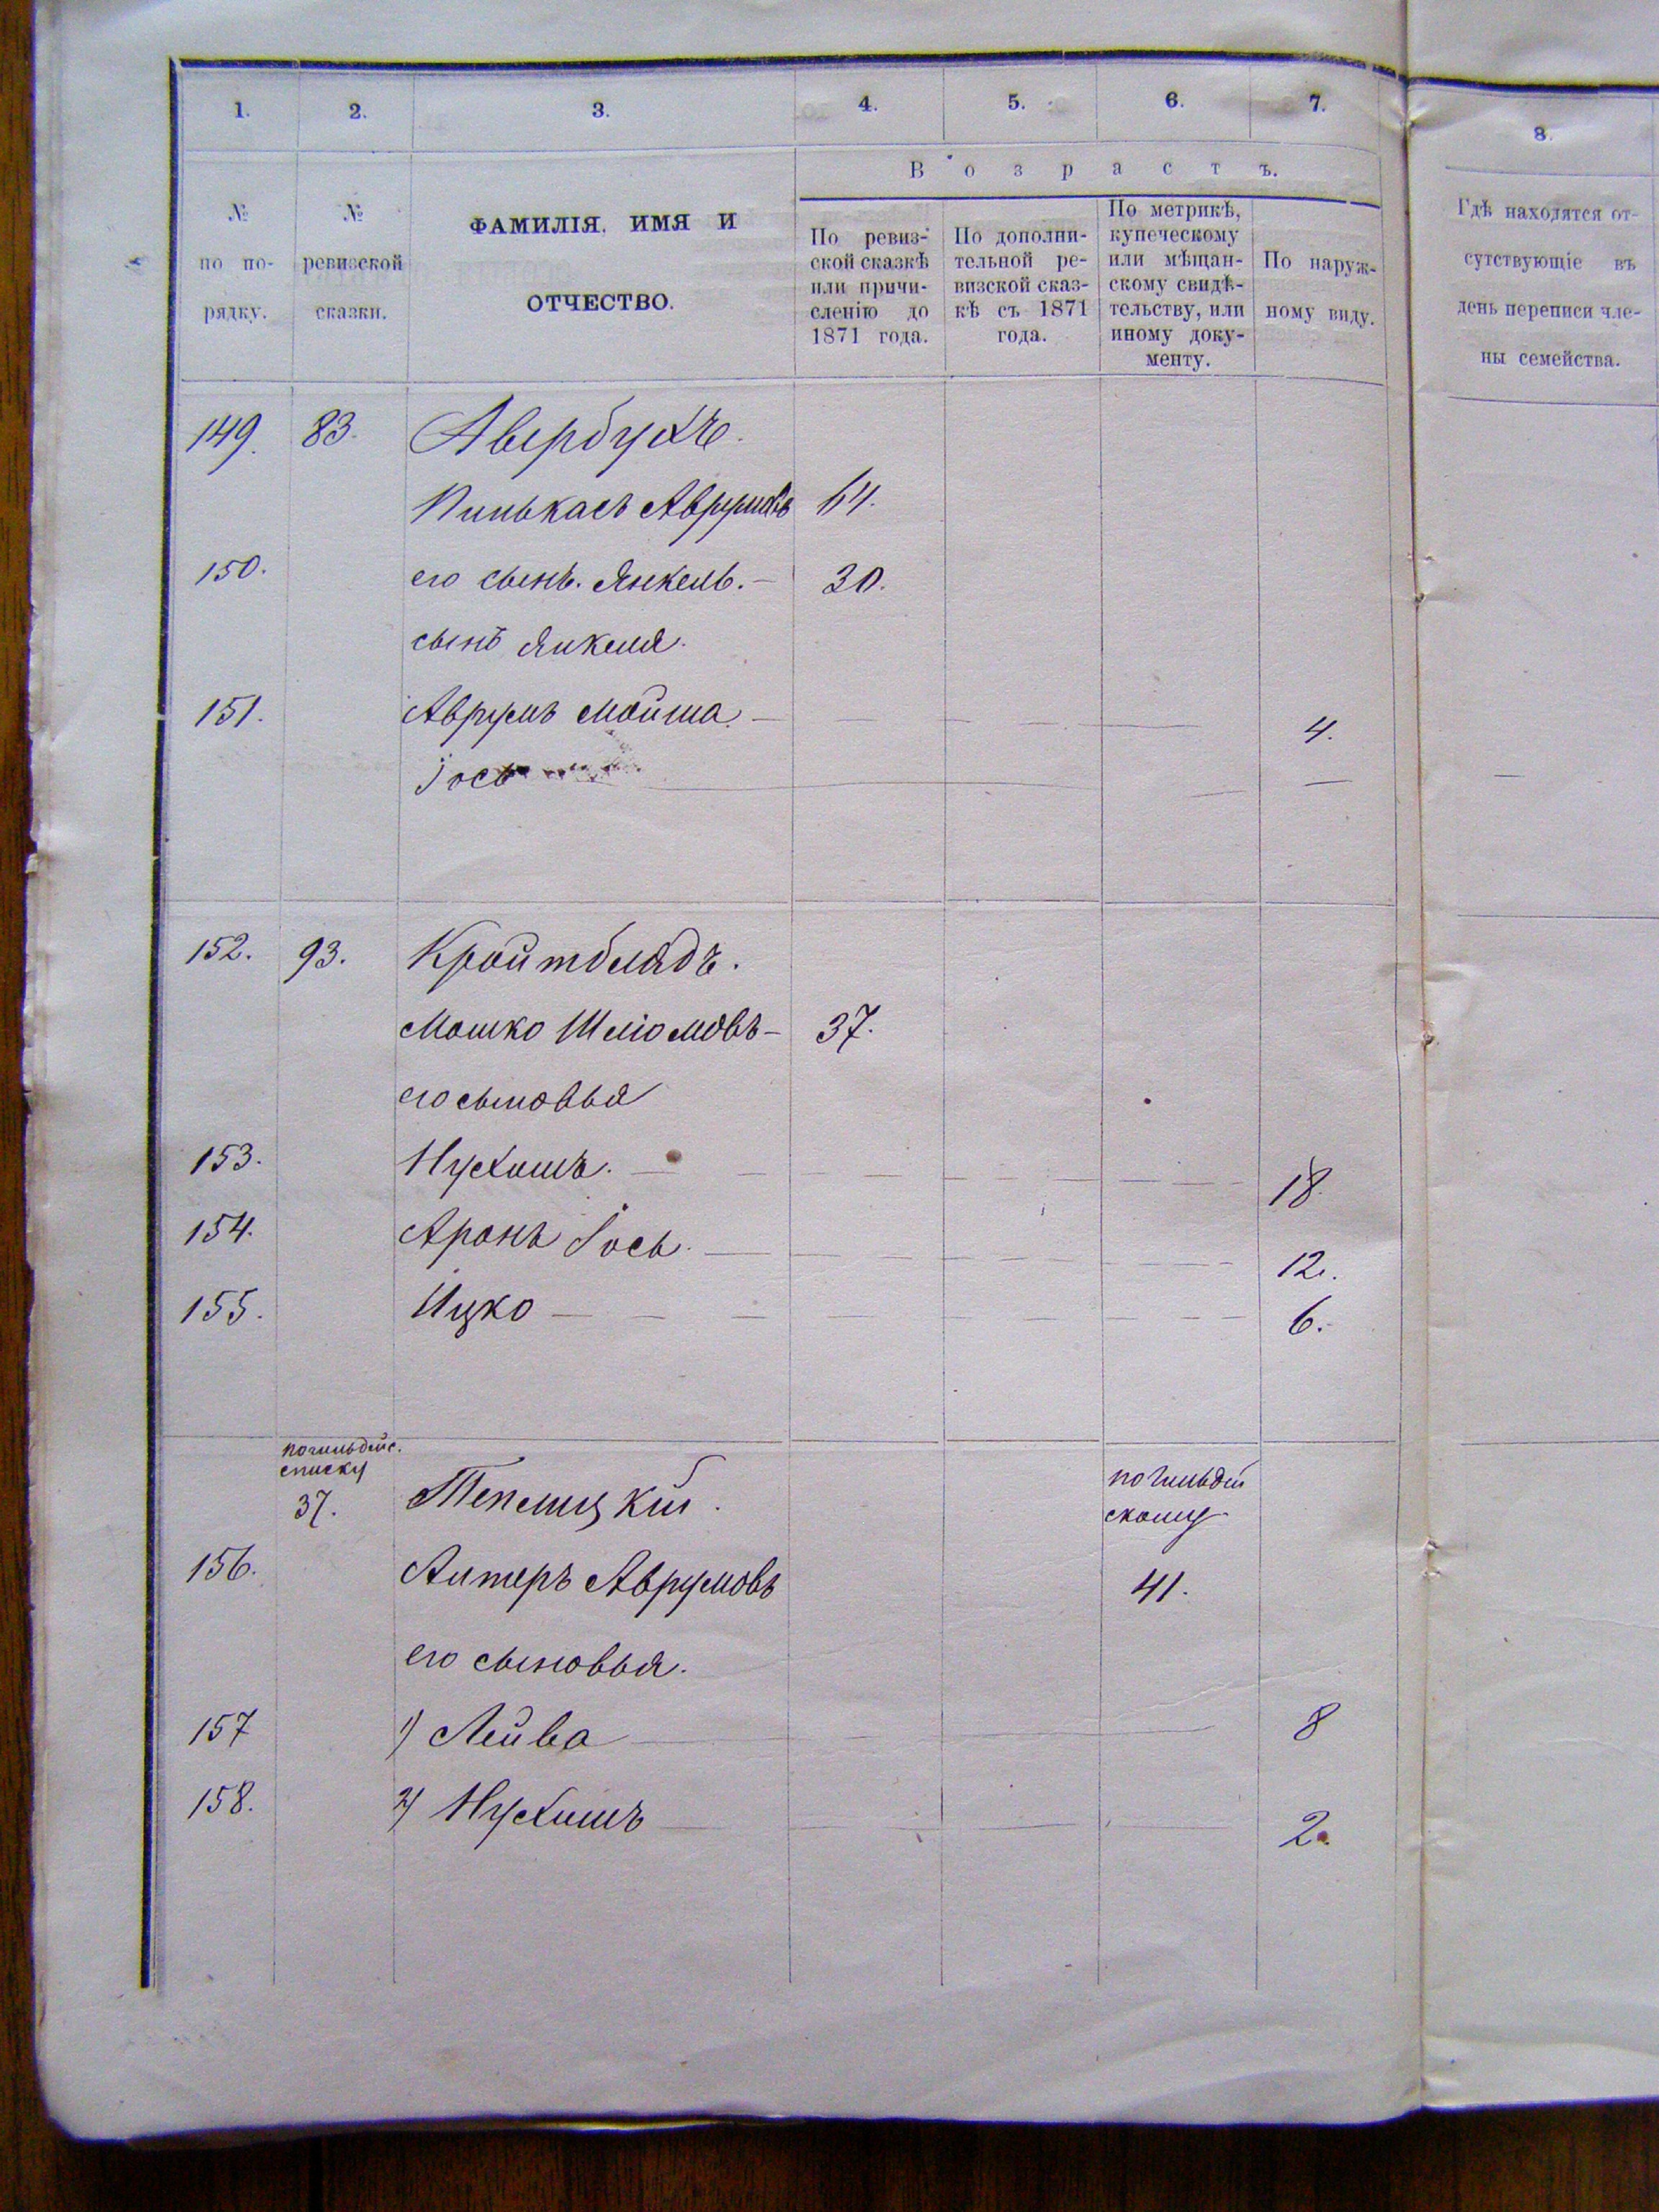 1. 2. 3. 4. 5. 6. 7. 8.
Возрастъ.
№ по порядку.
№ ревизской сказки.
ФАМИЛІЯ, ИМЯ И
ОТЧЕСТВО.
По ревиз-
ской сказкѣ
или причи-
сленію до
1871 года.
По дополни-
тельной ре-
визской сказ-
кѣ съ 1871
года.
По метрикѣ,
купеческому
или мѣщан-
скому свидѣ-
тельству, или
иному доку-
менту.
По наруж-
ному виду.
Гдѣ находятся от-
сутствующіе въ
день переписи чле-
ны семейства.
149. 83. Авербухъ.
Пинькасъ Аврумовъ 64.
150. его сынъ. Янкель. — 30.
сынъ Янкеля.
151. Аврумъ Мойша — 4.
Іось —
152. 93. Кройтблядъ.
Мошко Шліомовъ — 37.
его сыновья
153. Нухимъ. — 18.
154. Аронъ Іось. — 12.
155. Ицко — 6.
по гильдейс.
списку
37. Теплицкій.
по гильдей
скому
156. Алтеръ Аврумовъ 41.
его сыновья.
157 1) Лейва — 8
158. 2) Нухимъ — 2.